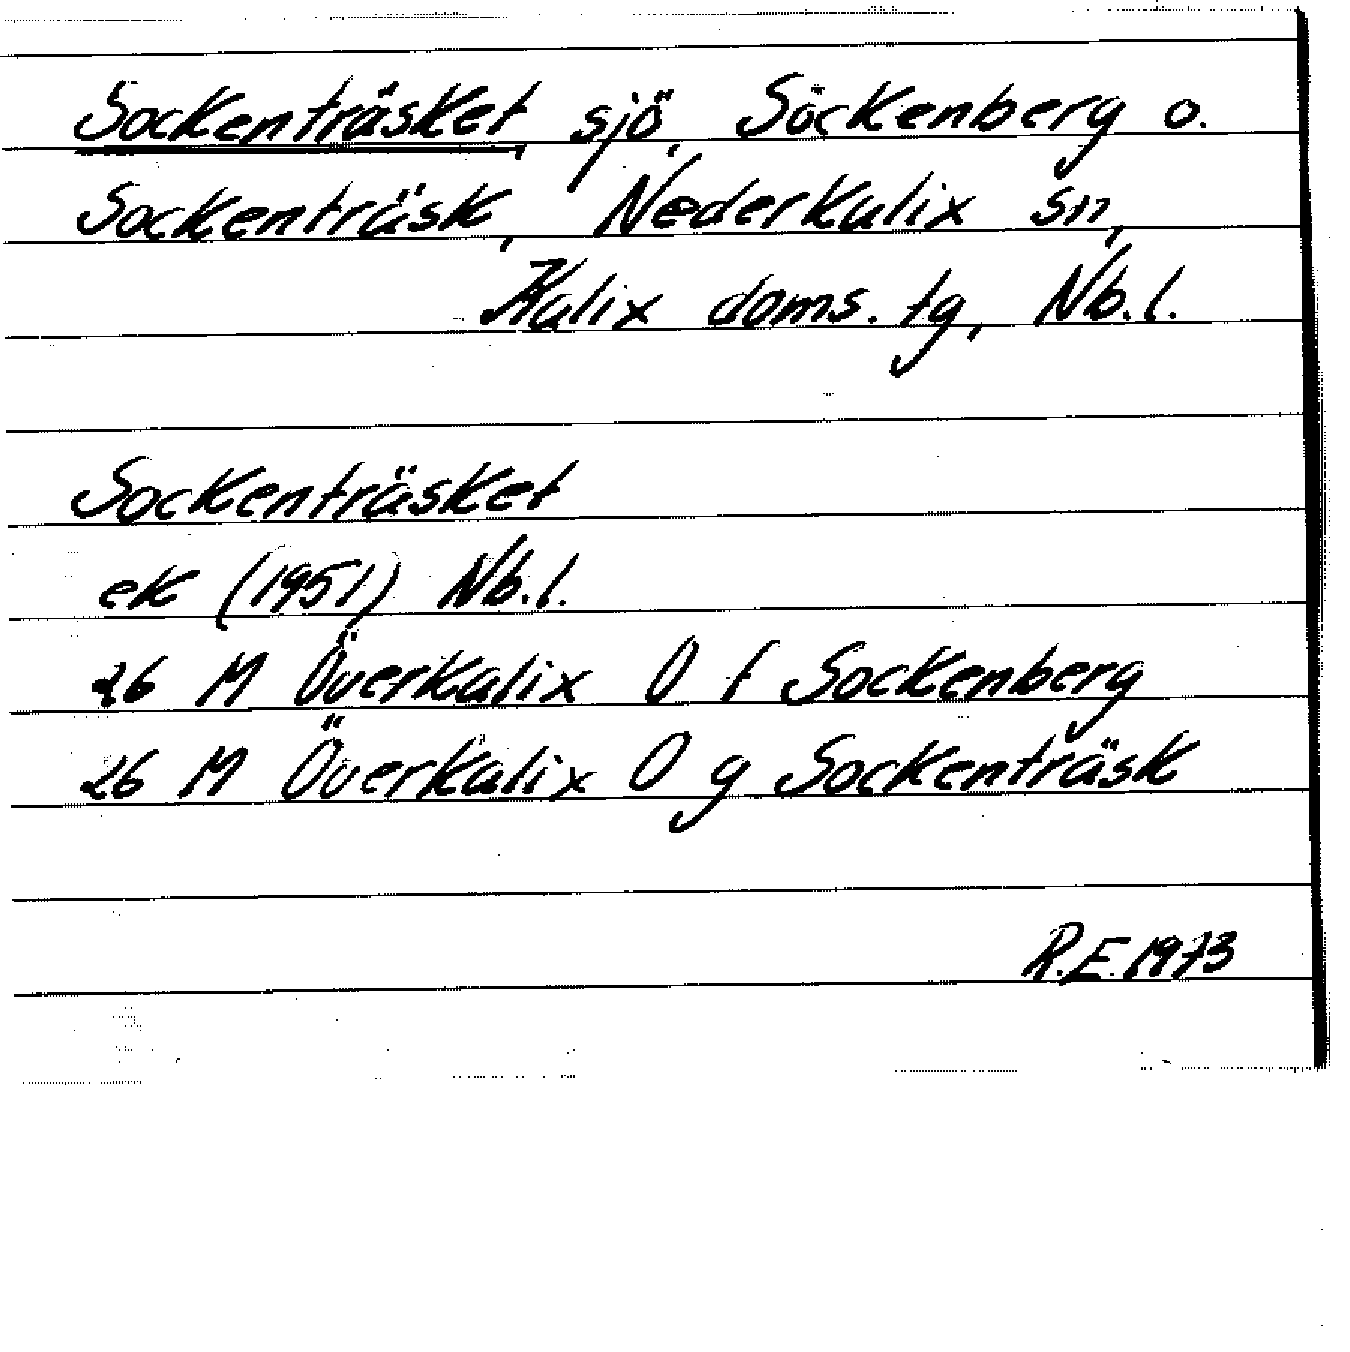 Sockenträsket, sjö, Söckenberg o.
Sockenträsk, Nederkalix sn,
Kalix doms. tg, Nb.l.
Sockenträsket
ek (1951) Nb.l.
26 M Överkalix O f Sockenberg
26 M Överkalix O g Sockenträsk
R.E. 1973